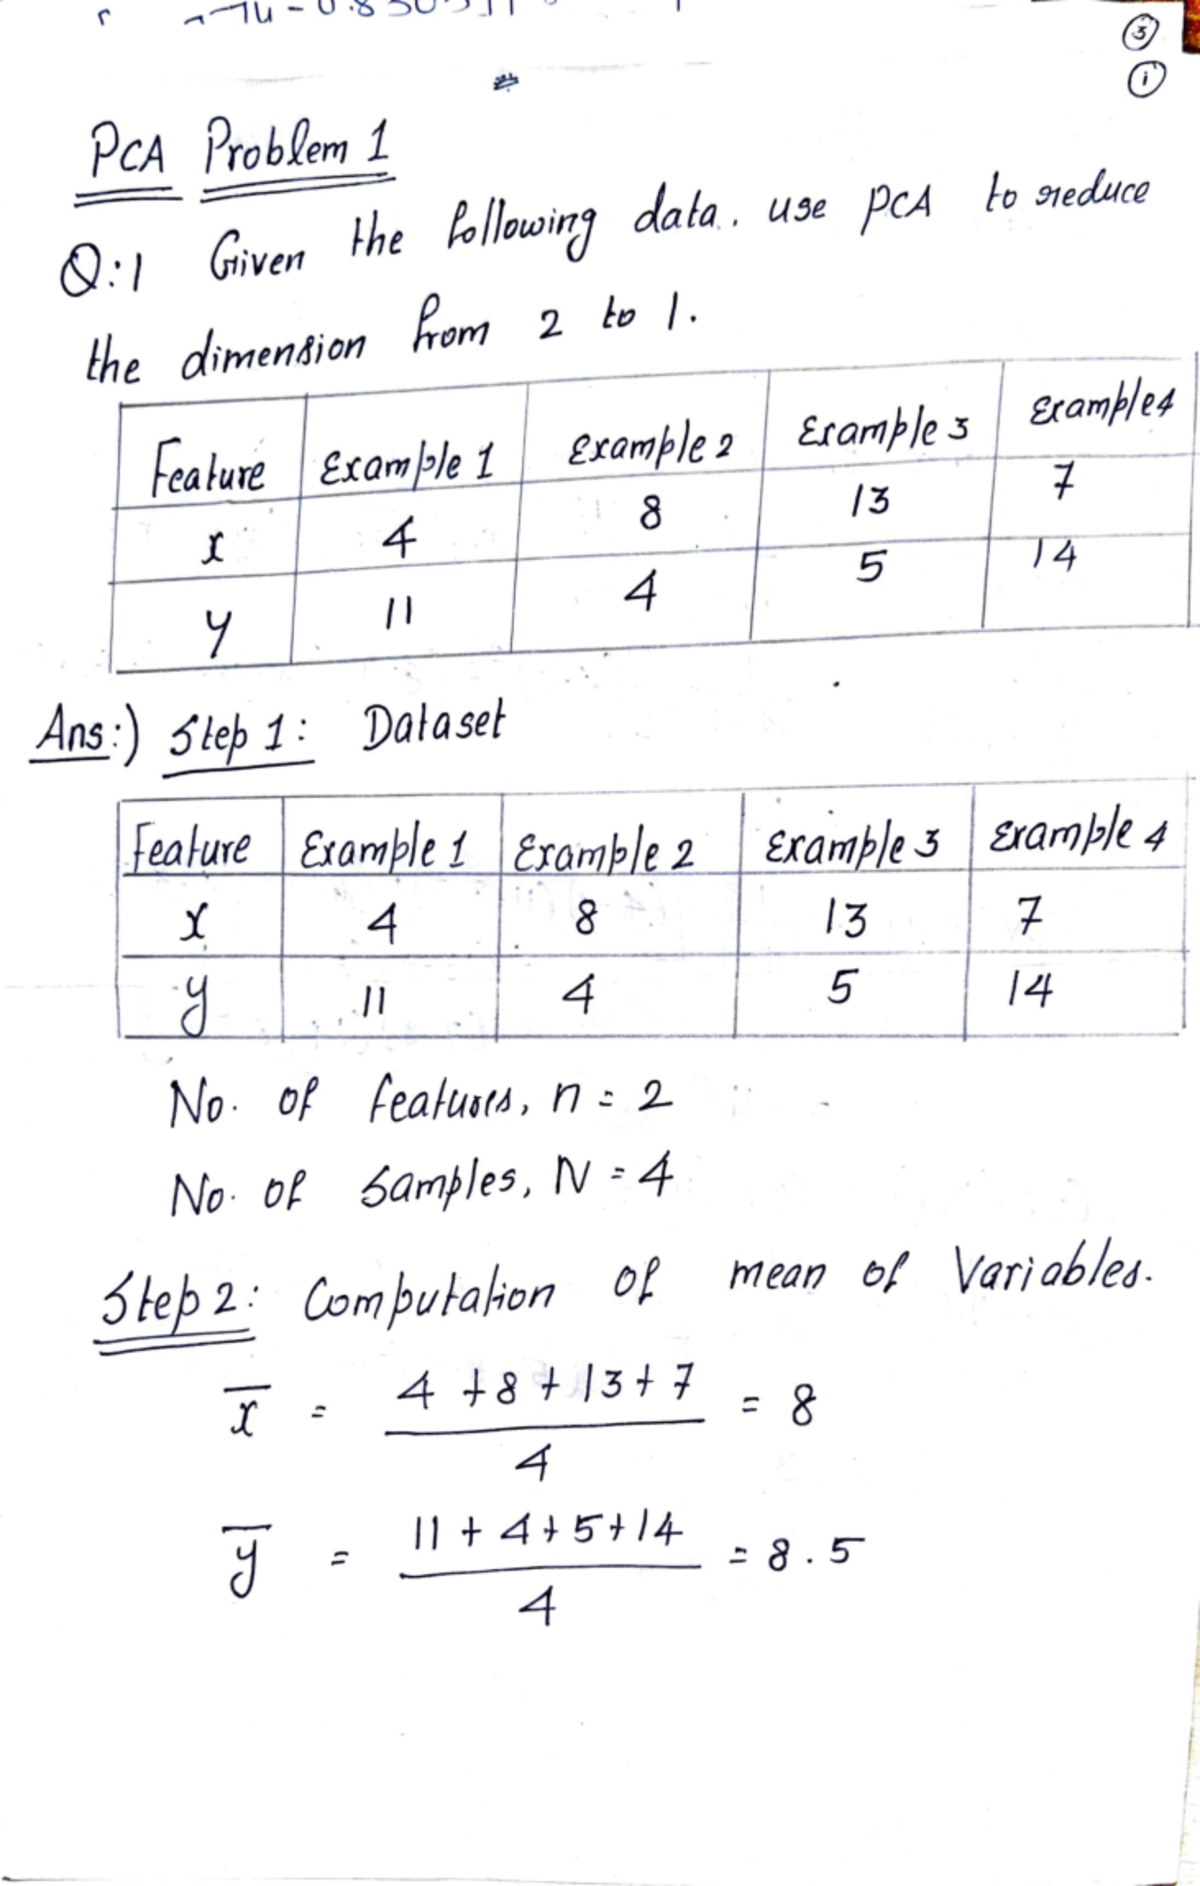 3
i
PCA Problem 1
Q:1 Given the following data. use PCA to reduce
the dimension from 2 to 1.
Feature Example 1 Example 2 Example 3 Example 4
x 4 8 13 7
y 11 4 5 14
Ans:) Step 1: Dataset
Feature Example 1 Example 2 Example 3 Example 4
x 4 8 13 7
y 11 4 5 14
No. of features, n = 2
No. of Samples, N = 4
Step 2: Computation of mean of Variables.
x̄ = (4 + 8 + 13 + 7) / 4 = 8
ȳ = (11 + 4 + 5 + 14) / 4 = 8.5